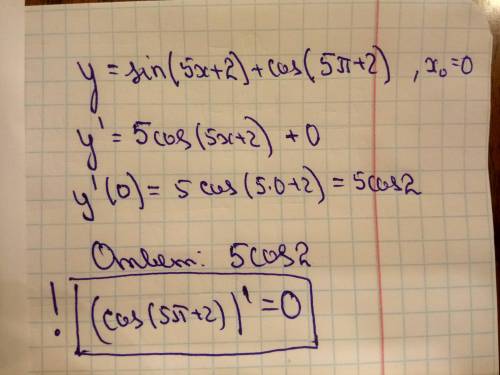 y = sin(5x+2) + cos(5π+2) , x₀=0
y' = 5cos(5x+2) + 0
y'(0) = 5 cos(5·0+2) = 5cos2
Ответ: 5cos2
! (cos(5π+2))' = 0